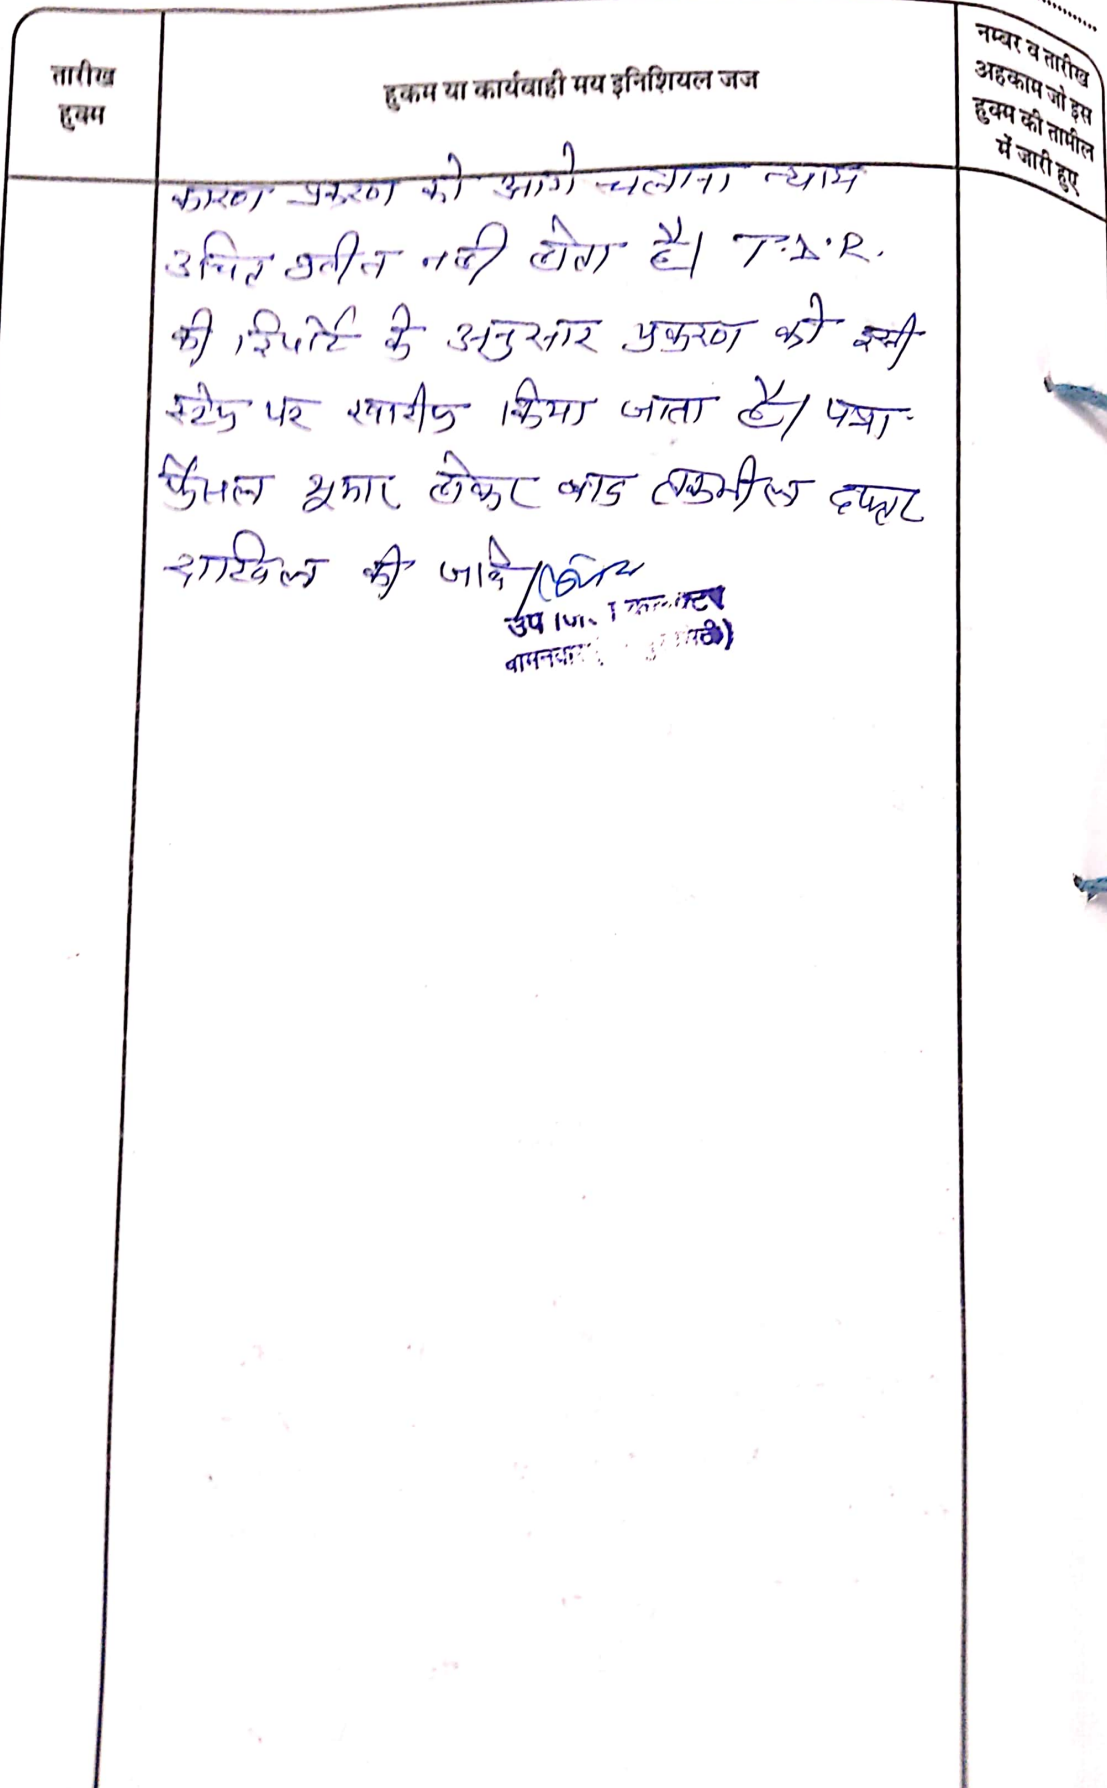 तारीख
हुक्म
हुकम या कार्यवाही मय इनिशियल जज
नम्बर व तारीख
अहकाम जो इस
हुक्म की तामील
में जारी हुए
कारण प्रकरण को आगे चलाना न्याय
उचित प्रतीत नही होता है। T.D.R.
की रिपोर्ट के अनुसार प्रकरण को इसी
स्टेज पर खारीज किया जाता है। पत्रा.
फैसल शुमार होकर बाद तकमील दफ्तर
दाखिल की जावे।
उप